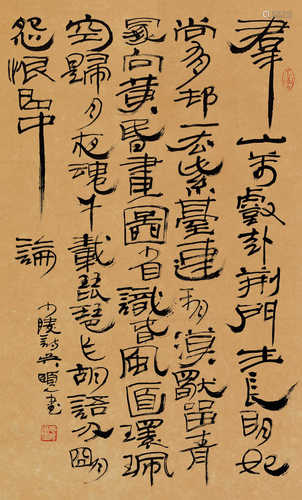 羣山萬壑赴荊門生長明妃
尚有邨一去紫臺連朔漠獨留青
冢向黃昏畫圖省識春風面環珮
空歸月夜魂千載琵琶作胡語分明
怨恨曲中論
少陵詩吳書